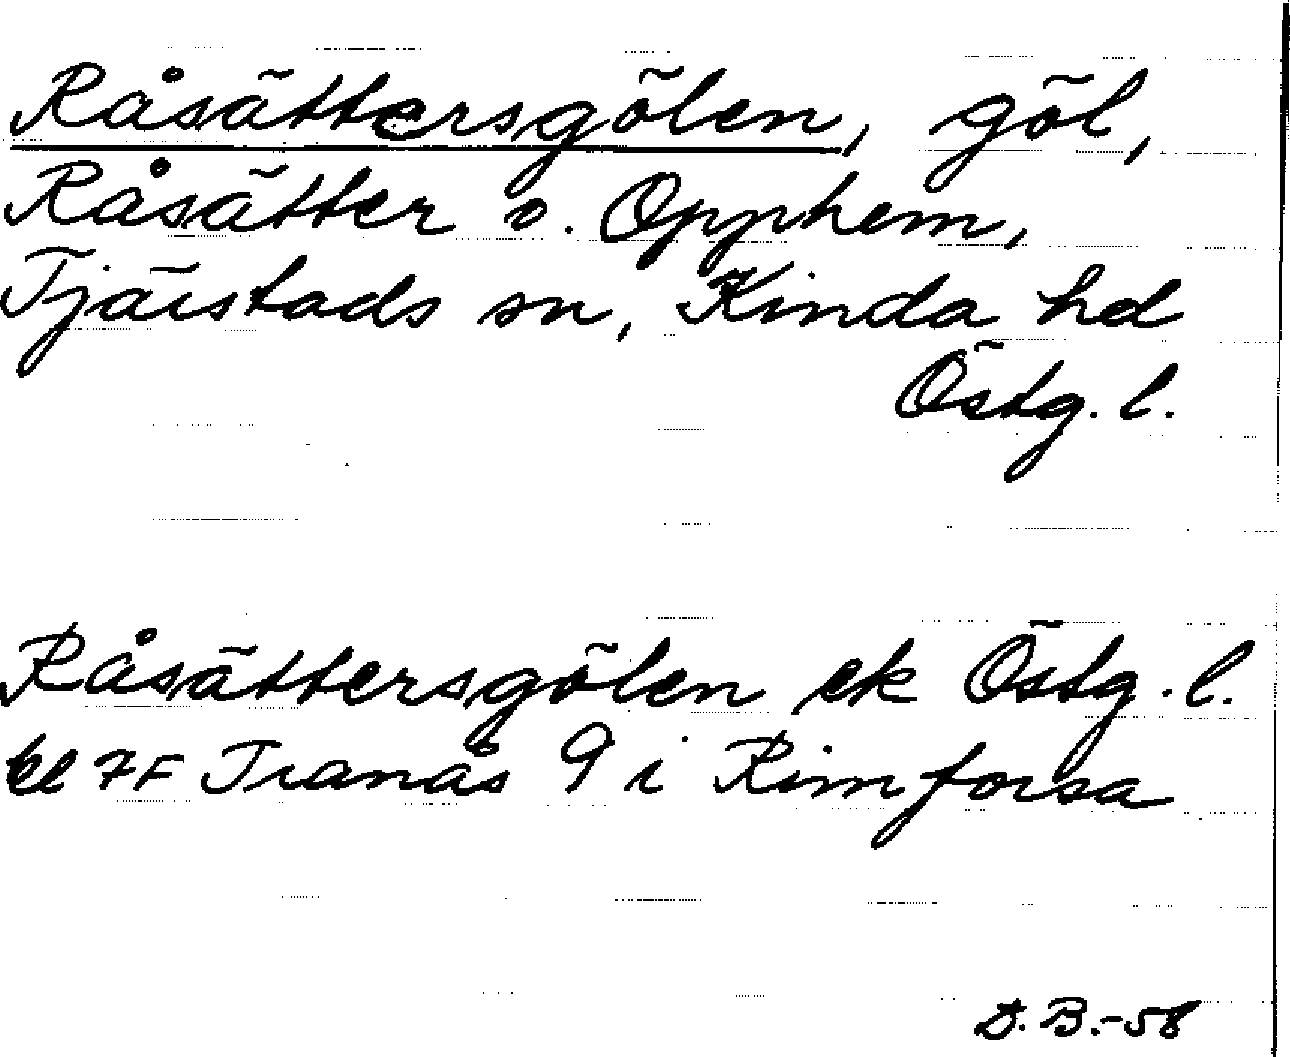 Råsättersgölen, göl,
Råsätter o. Opphem,
Tjärstads sn, Kinda hd
Östg. l.
Råsättersgölen ek Östg. l.
bl 7F Tranås 9 i Rimforsa
D.B.-58